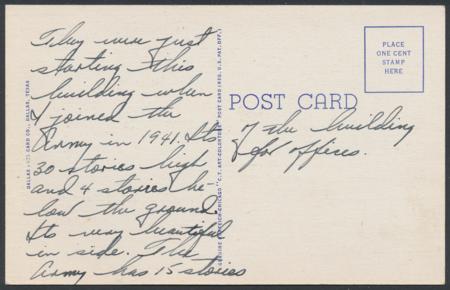 They were just
starting this
building when
I joined the
Army in 1941. Its
30 stories high
and 4 stories be-
low the ground.
Its very beautiful
in side. The
Army has 15 stories
of the building
for offices.
POST CARD
PLACE
ONE CENT
STAMP
HERE
DALLAS CARD CO., DALLAS, TEXAS
GENUINE CURTEICH-CHICAGO "C.T. ART-COLORTONE" POST CARD (REG. U.S. PAT. OFF.)